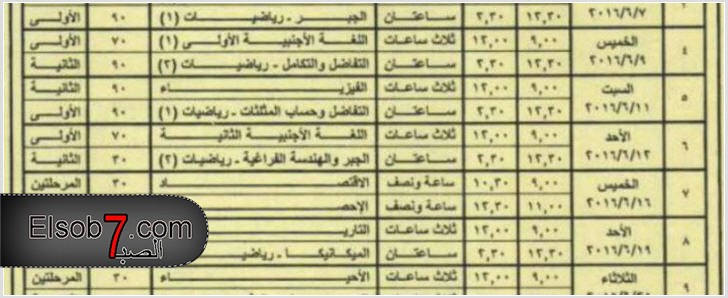 ٢٠١٦/٦/٧ ١٢,٣٠ ٢,٣٠ ساعتان الجبر ـ رياضيات (١) ٩٠ الأولى
٤ الخميس ٩,٠٠ ١٢,٠٠ ثلاث ساعات اللغة الأجنبية الأولى (١) ٧٠ الأولى
٢٠١٦/٦/٩ ١٢,٣٠ ٢,٣٠ ساعتان التفاضل والتكامل ـ رياضيات (٢) ٩٠ الثانية
٥ السبت ٩,٠٠ ١٢,٠٠ ثلاث ساعات الفيزياء ٩٠ الثانية
٢٠١٦/٦/١١ ١٢,٣٠ ٢,٣٠ ساعتان التفاضل وحساب المثلثات ـ رياضيات (١) ٩٠ الأولى
٦ الأحد ٩,٠٠ ١٢,٠٠ ثلاث ساعات اللغة الأجنبية الثانية ٧٠ الأولى
٢٠١٦/٦/١٢ ١٢,٣٠ ٢,٣٠ ساعتان الجبر والهندسة الفراغية ـ رياضيات (٢) ٣٠ الثانية
٧ الخميس ٩,٠٠ ١٠,٣٠ ساعة ونصف الاقتصاد ٣٠ المرحلتين
٢٠١٦/٦/١٦ ١١,٠٠ ١٢,٣٠ ساعة ونصف الإحص
٨ الأحد ٩,٠٠ ١٢,٠٠ ثلاث ساعات التاريـ
٢٠١٦/٦/١٩ ١٢,٣٠ ٢,٣٠ ساعتان الميكانيكا ـ رياضيـ
٩ الثلاثاء ٩,٠٠ ١٢,٠٠ ثلاث ساعات الأحياء ٣٠ المرحلتين
Elsob7.com
الصبـ